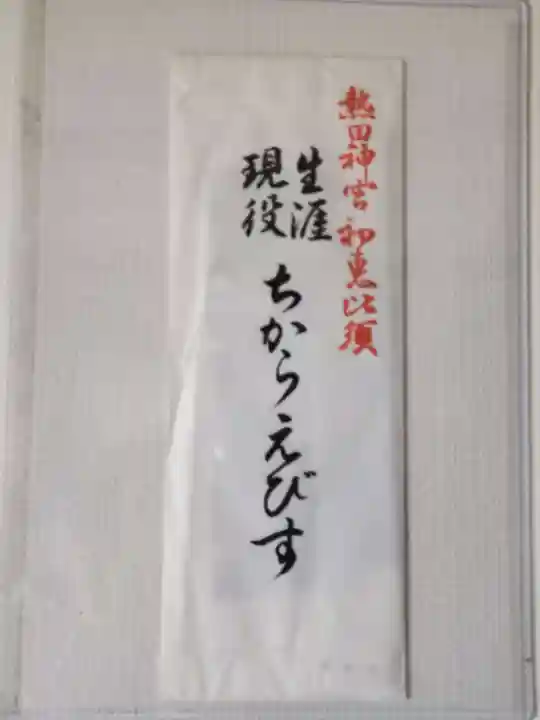 熱田神宮 初恵比須
生涯
現役
ちからえびす